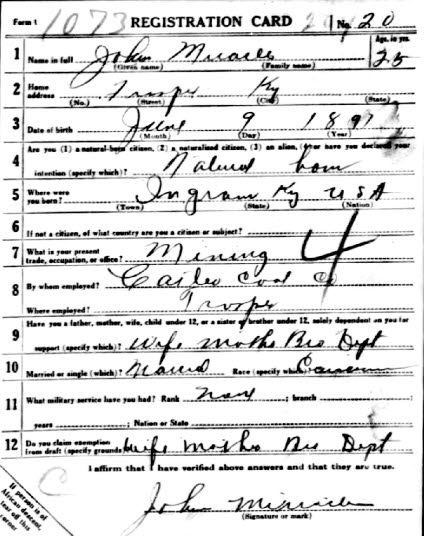 Form 1 1073 REGISTRATION CARD No. 20
1 Name in full John Miracle Age, in yrs. 25
(Given name) (Family name)
2 Home address Trosper Ky
(No.) (Street) (City) (State)
3 Date of birth June 9 1891
(Month) (Day) (Year)
Are you (1) a natural-born citizen, (2) a naturalized citizen, (3) an alien, (4) or have you declared your
4 intention (specify which)? Natural born
5 Where were you born? Ingram Ky USA
(Town) (State) (Nation)
6 If not a citizen, of what country are you a citizen or subject?
7 What is your present trade, occupation, or office? Mining 4
8 By whom employed? Coal Co
Where employed? Trosper
Have you a father, mother, wife, child under 12, or a sister or brother under 12, solely dependent on you for
9 support (specify which)? Wife Mother Bro Dept
10 Married or single (which)? Married Race (specify which)? Caucasian
11 What military service have you had? Rank None ; branch
years ; Nation or State
12 Do you claim exemption from draft (specify grounds)? Wife Mother Bro Dept
I affirm that I have verified above answers and that they are true.
John Miracle
(Signature or mark)
If person is of
African descent,
tear off this
corner